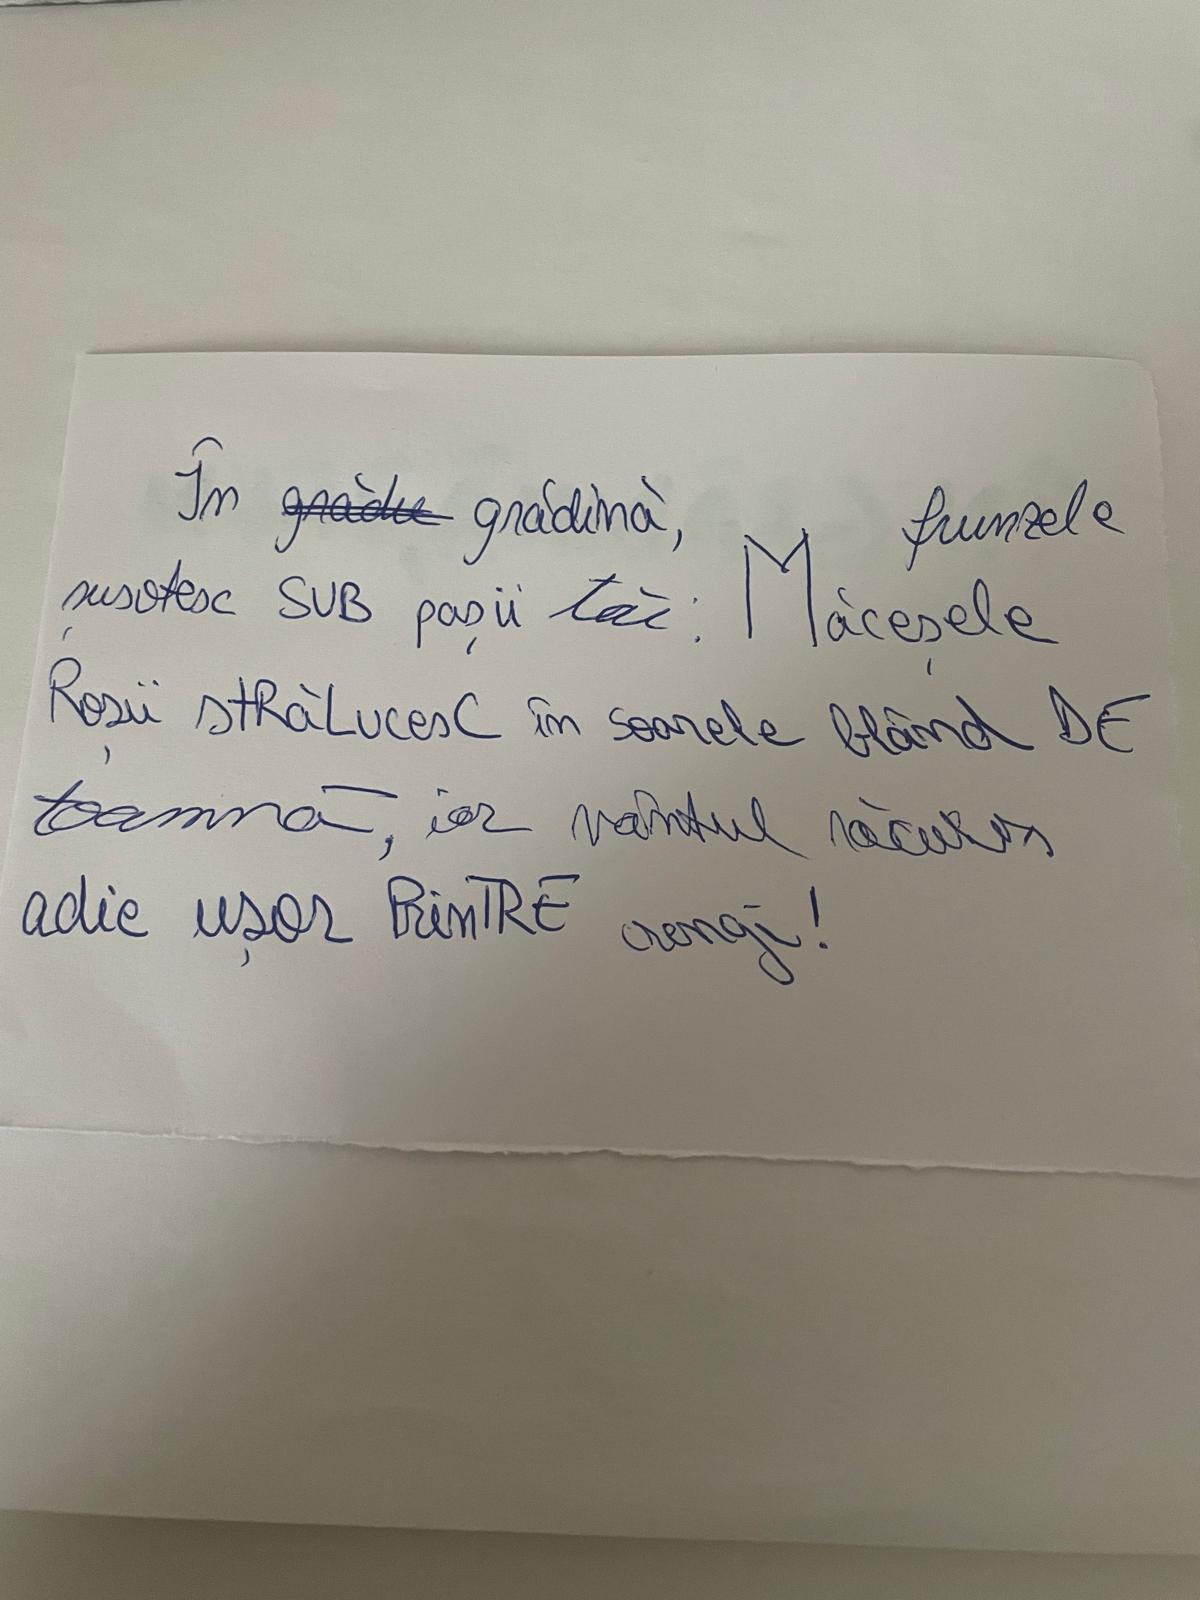 În grădi grădină, frunzele
șușotesc SUB pașii tăi: Măceșele
Roșii stRăLucesC în soarele blând DE
toamnă, iar vântul răcoros
adie ușor PRinTRE crengi!